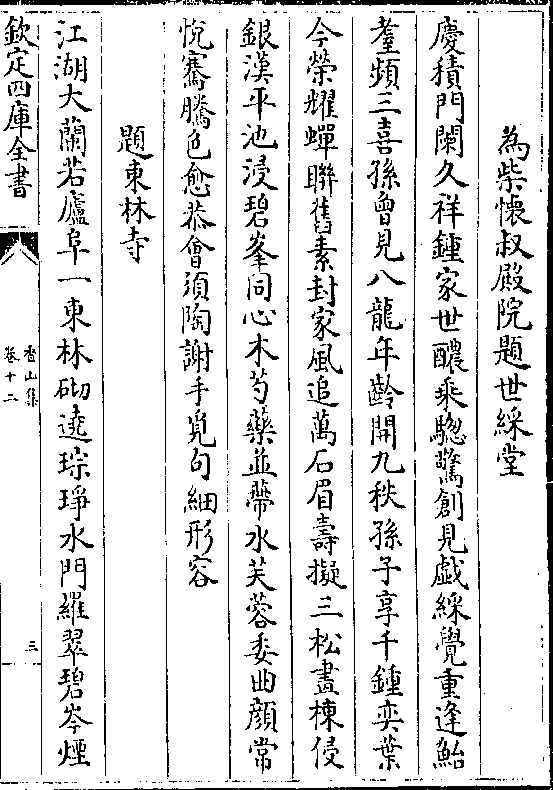 為柴懷叔殿院題世綵堂
慶積門闌久祥鍾家世醲乘驄驚創見戯綵覺重逢鮐
耋頻三喜孫曾見八龍年齡開九秩孫子享千鍾奕葉
今榮耀蟬聯舊素封家風追萬石眉壽擬三松畫棟侵
銀漢平池浸碧峯同心木芍藥並蔕水芙蓉委曲顔常
悅騫騰色愈恭會須陶謝手覓句細形容
題東林寺
江湖大蘭若廬阜一東林砌遶琮琤水門羅翠碧岑煙
欽定四庫全書
香山集
卷十二
三